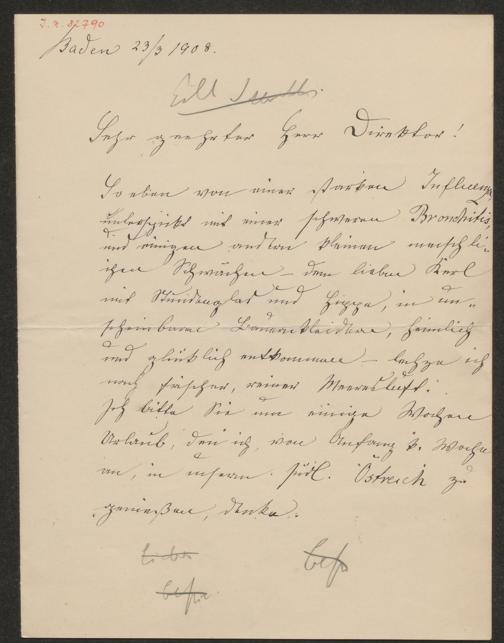 I.N. 32790
Baden 23/3 1908.
Sehr geehrter Herr Direktor!
Soeben von einer starken Influenza
unterspickt mit einer schweren Bronchitis,
und einigen andern kleinen menschli-
chen Schwächen – dem lieben Kerl
mit Stundenglas und Hippe, in un-
scheinbaren Bauernkleidern, heimlich
und glücklich entkommen – lechze ich
nach frischer, reiner Meeresluft.
Ich bitte Sie um einige Wochen
Urlaub, den ich, von Anfang d. Woche
an, in unserm südl. Östreich zu
genießen, denke.